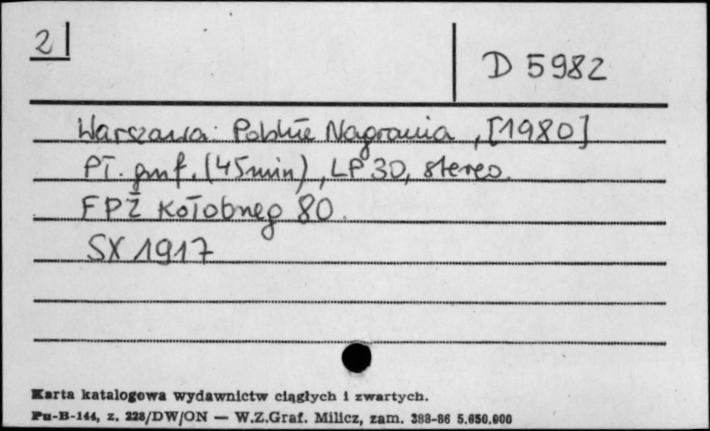 2
D 5982
Warszawa: Polskie Nagrania, [1980]
Pł. gmf. (45min), LP 30, stereo.
FPŻ Kołobrzeg 80.
SX 1917
Karta katalogowa wydawnictw ciągłych i zwartych.
Pu-B-144, z. 228/DW/ON — W.Z.Graf. Milicz, zam. 388-86 5.650.000